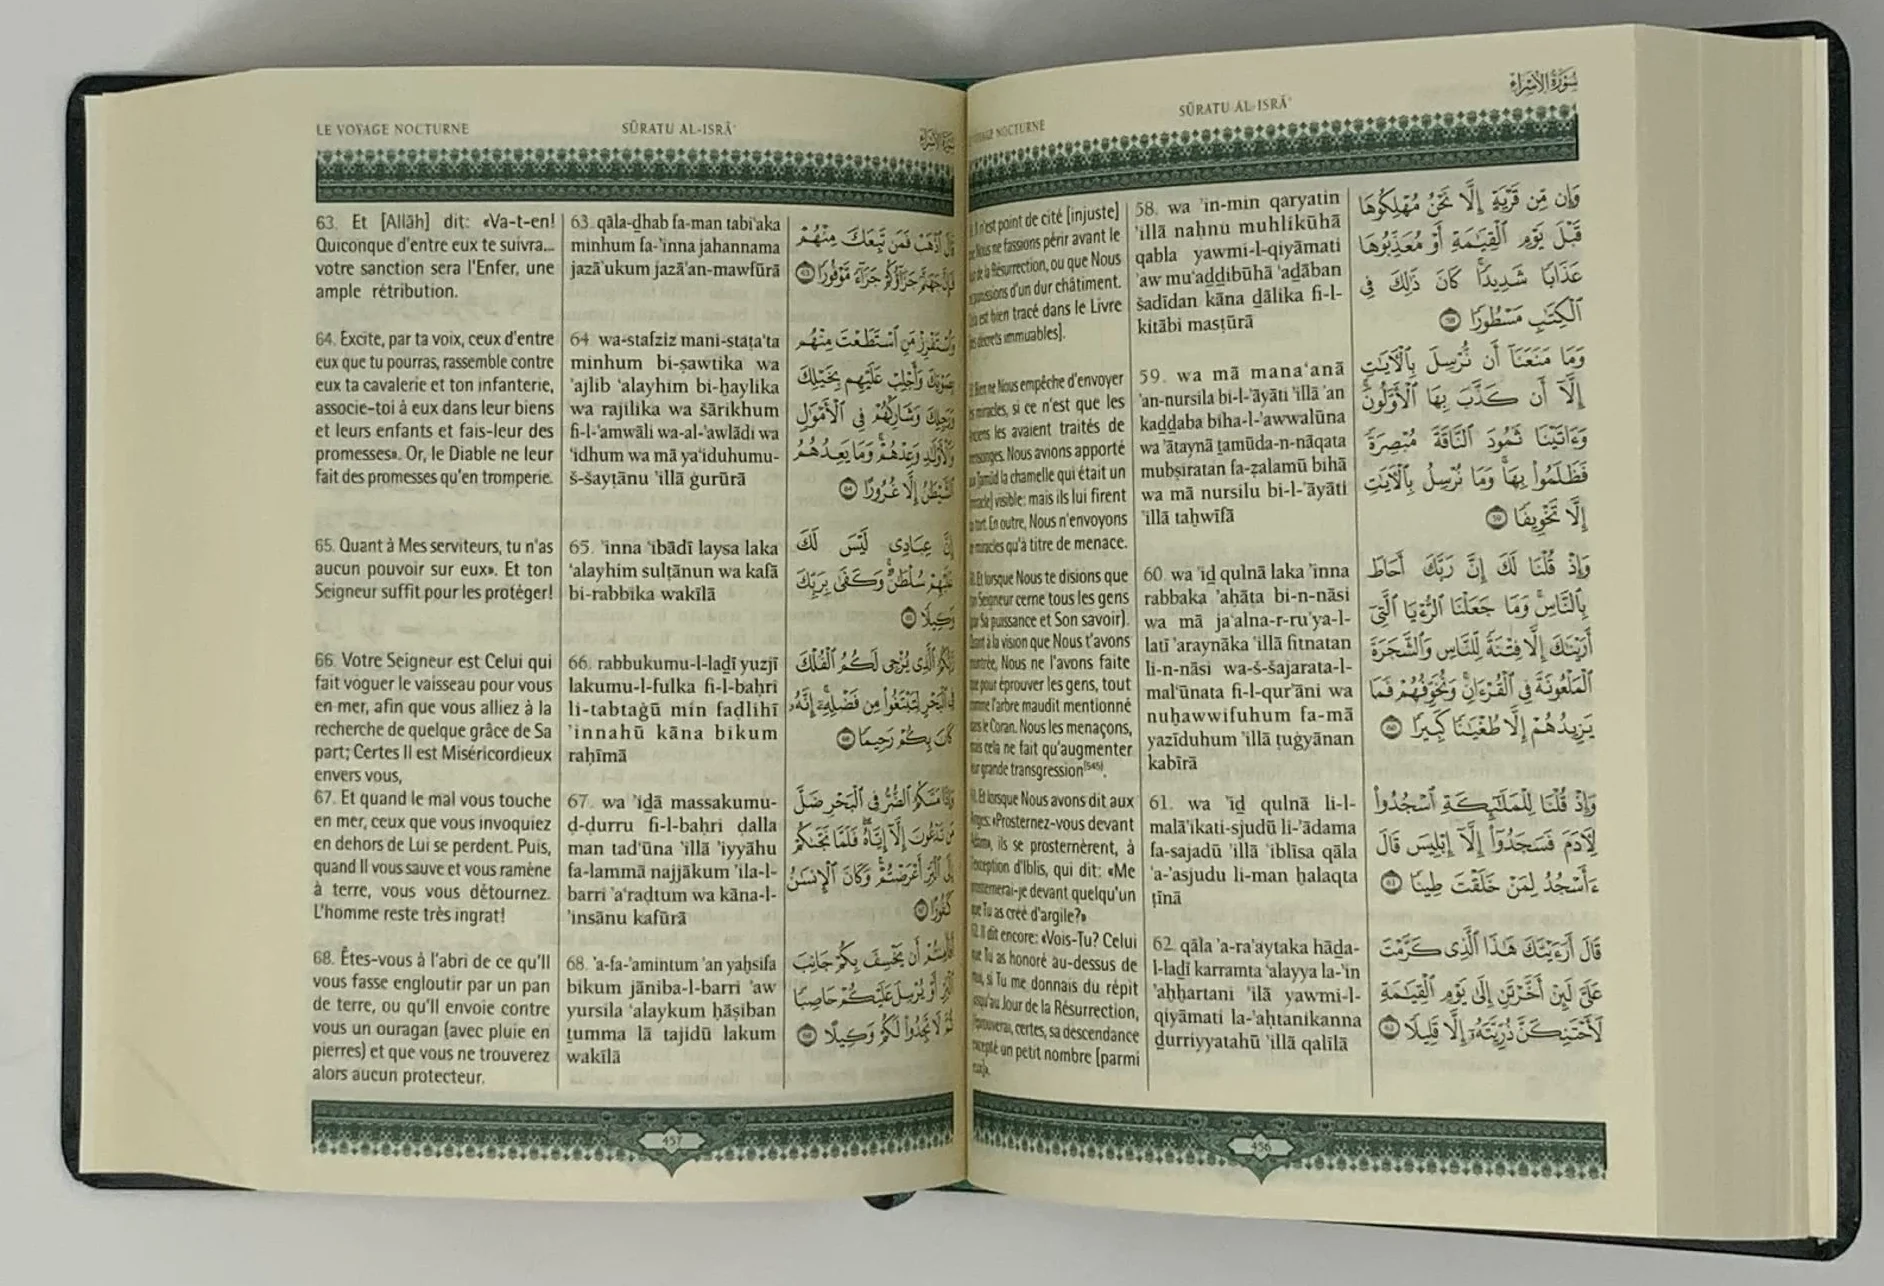 سُورَةُ الإِسْرَاءِ
SŪRATU AL-ISRĀ'
NOCTURNE
وَإِن مِّن قَرْيَةٍ إِلَّا نَحْنُ مُهْلِكُوهَا
قَبْلَ يَوْمِ ٱلْقِيَٰمَةِ أَوْ مُعَذِّبُوهَا
عَذَابًا شَدِيدًا ۚ كَانَ ذَٰلِكَ فِى
ٱلْكِتَٰبِ مَسْطُورًا ٥٨
وَمَا مَنَعَنَآ أَن نُّرْسِلَ بِٱلْءَايَٰتِ
إِلَّآ أَن كَذَّبَ بِهَا ٱلْأَوَّلُونَ ۚ
وَءَاتَيْنَا ثَمُودَ ٱلنَّاقَةَ مُبْصِرَةً
فَظَلَمُوا۟ بِهَا ۚ وَمَا نُرْسِلُ بِٱلْءَايَٰتِ
إِلَّا تَخْوِيفًا ٥٩
وَإِذْ قُلْنَا لَكَ إِنَّ رَبَّكَ أَحَاطَ
بِٱلنَّاسِ ۚ وَمَا جَعَلْنَا ٱلرُّءْيَا ٱلَّتِىٓ
أَرَيْنَٰكَ إِلَّا فِتْنَةً لِّلنَّاسِ وَٱلشَّجَرَةَ
ٱلْمَلْعُونَةَ فِى ٱلْقُرْءَانِ ۚ وَنُخَوِّفُهُمْ فَمَا
يَزِيدُهُمْ إِلَّا طُغْيَٰنًا كَبِيرًا ٦٠
وَإِذْ قُلْنَا لِلْمَلَٰٓئِكَةِ ٱسْجُدُوا۟
لِءَادَمَ فَسَجَدُوٓا۟ إِلَّآ إِبْلِيسَ قَالَ
ءَأَسْجُدُ لِمَنْ خَلَقْتَ طِينًا ٦١
قَالَ أَرَءَيْتَكَ هَٰذَا ٱلَّذِى كَرَّمْتَ
عَلَىَّ لَئِنْ أَخَّرْتَنِ إِلَىٰ يَوْمِ ٱلْقِيَٰمَةِ
لَأَحْتَنِكَنَّ ذُرِّيَّتَهُۥٓ إِلَّا قَلِيلًا ٦٢
58. wa 'in-min qaryatin
'illā naḥnu muhlikūhā
qabla yawmi-l-qiyāmati
'aw mu'aḏḏibūhā 'aḏāban
šadīdan kāna ḏālika fi-l-
kitābi masṭūrā
59. wa mā mana'anā
'an-nursila bi-l-'āyāti 'illā 'an
kaḏḏaba biha-l-'awwalūna
wa 'ātaynā ṯamūda-n-nāqata
mubṣiratan fa-ẓalamū bihā
wa mā nursilu bi-l-'āyāti
'illā taḫwīfā
60. wa 'iḏ qulnā laka 'inna
rabbaka 'aḥāṭa bi-n-nāsi
wa mā ja'alna-r-ru'ya-l-
latī 'araynāka 'illā fitnatan
li-n-nāsi wa-š-šajarata-l-
mal'ūnata fi-l-qur'āni wa
nuḫawwifuhum fa-mā
yazīduhum 'illā ṭuġyānan
kabīrā
61. wa 'iḏ qulnā li-l-
malā'ikati-sjudū li-'ādama
fa-sajadū 'illā 'iblīsa qāla
'a-'asjudu li-man ḫalaqta
ṭīnā
62. qāla 'a-ra'aytaka hāḏa-
l-laḏī karramta 'alayya la-'in
'aḫḫartani 'ilā yawmi-l-
qiyāmati la-'aḥtanikanna
ḏurriyyatahū 'illā qalīlā
n'est point de cité [injuste]
Nous ne fassions périr avant le
de la Résurrection, ou que Nous
d'un dur châtiment.
est bien tracé dans le Livre
décrets immuables].
ne Nous empêche d'envoyer
miracles, si ce n'est que les
les avaient traités de
Nous avions apporté
la chamelle qui était un
visible: mais ils lui firent
tort. En outre, Nous n'envoyons
miracles qu'à titre de menace.
Et lorsque Nous te disions que
Seigneur cerne tous les gens
Sa puissance et Son savoir].
à la vision que Nous t'avons
Nous ne l'avons faite
pour éprouver les gens, tout
l'arbre maudit mentionné
le Coran. Nous les menaçons,
cela ne fait qu'augmenter
grande transgression[545].
Et lorsque Nous avons dit aux
Anges: «Prosternez-vous devant
ils se prosternèrent, à
d'Iblis, qui dit: «Me
devant quelqu'un
que Tu as créé d'argile?»
62. Il dit encore: «Vois-Tu? Celui
que Tu as honoré au-dessus de
si Tu me donnais du répit
au Jour de la Résurrection,
certes, sa descendance
excepté un petit nombre [parmi
456
LE VOYAGE NOCTURNE
SŪRATU AL-ISRĀ'
63. Et [Allāh] dit: «Va-t-en!
Quiconque d'entre eux te suivra...
votre sanction sera l'Enfer, une
ample rétribution.
64. Excite, par ta voix, ceux d'entre
eux que tu pourras, rassemble contre
eux ta cavalerie et ton infanterie,
associe-toi à eux dans leur biens
et leurs enfants et fais-leur des
promesses». Or, le Diable ne leur
fait des promesses qu'en tromperie.
65. Quant à Mes serviteurs, tu n'as
aucun pouvoir sur eux». Et ton
Seigneur suffit pour les protéger!
66. Votre Seigneur est Celui qui
fait voguer le vaisseau pour vous
en mer, afin que vous alliez à la
recherche de quelque grâce de Sa
part; Certes Il est Miséricordieux
envers vous,
67. Et quand le mal vous touche
en mer, ceux que vous invoquiez
en dehors de Lui se perdent. Puis,
quand Il vous sauve et vous ramène
à terre, vous vous détournez.
L'homme reste très ingrat!
68. Êtes-vous à l'abri de ce qu'Il
vous fasse engloutir par un pan
de terre, ou qu'Il envoie contre
vous un ouragan (avec pluie en
pierres) et que vous ne trouverez
alors aucun protecteur.
63. qāla-ḏhab fa-man tabi'aka
minhum fa-'inna jahannama
jazā'ukum jazā'an-mawfūrā
64. wa-stafziz mani-staṭa'ta
minhum bi-ṣawtika wa
'ajlib 'alayhim bi-ḫaylika
wa rajilika wa šārikhum
fi-l-'amwāli wa-al-'awlādi wa
'idhum wa mā ya'iduhumu-
š-šayṭānu 'illā ġurūrā
65. 'inna 'ibādī laysa laka
'alayhim sulṭānun wa kafā
bi-rabbika wakīlā
66. rabbukumu-l-laḏī yuzjī
lakumu-l-fulka fi-l-baḥri
li-tabtaġū min faḍlihī
'innahū kāna bikum
raḥīmā
67. wa 'iḏā massakumu-
ḍ-ḍurru fi-l-baḥri ḍalla
man tad'ūna 'illā 'iyyāhu
fa-lammā najjākum 'ila-l-
barri 'a'raḍtum wa kāna-l-
'insānu kafūrā
68. 'a-fa-'amintum 'an yaḫsifa
bikum jāniba-l-barri 'aw
yursila 'alaykum ḥāṣiban
ṯumma lā tajidū lakum
wakīlā
قَالَ ٱذْهَبْ فَمَن تَبِعَكَ مِنْهُمْ
فَإِنَّ جَهَنَّمَ جَزَآؤُكُمْ جَزَآءً مَّوْفُورًا ٦٣
وَٱسْتَفْزِزْ مَنِ ٱسْتَطَعْتَ مِنْهُم
بِصَوْتِكَ وَأَجْلِبْ عَلَيْهِم بِخَيْلِكَ
وَرَجِلِكَ وَشَارِكْهُمْ فِى ٱلْأَمْوَٰلِ
وَٱلْأَوْلَٰدِ وَعِدْهُمْ ۚ وَمَا يَعِدُهُمُ
ٱلشَّيْطَٰنُ إِلَّا غُرُورًا ٦٤
إِنَّ عِبَادِى لَيْسَ لَكَ
عَلَيْهِمْ سُلْطَٰنٌ ۚ وَكَفَىٰ بِرَبِّكَ
وَكِيلًا ٦٥
رَّبُّكُمُ ٱلَّذِى يُزْجِى لَكُمُ ٱلْفُلْكَ
فِى ٱلْبَحْرِ لِتَبْتَغُوا۟ مِن فَضْلِهِۦٓ ۚ إِنَّهُۥ
كَانَ بِكُمْ رَحِيمًا ٦٦
وَإِذَا مَسَّكُمُ ٱلضُّرُّ فِى ٱلْبَحْرِ ضَلَّ
مَن تَدْعُونَ إِلَّآ إِيَّاهُ ۖ فَلَمَّا نَجَّىٰكُمْ
إِلَى ٱلْبَرِّ أَعْرَضْتُمْ ۚ وَكَانَ ٱلْإِنسَٰنُ
كَفُورًا ٦٧
أَفَأَمِنتُمْ أَن يَخْسِفَ بِكُمْ جَانِبَ
ٱلْبَرِّ أَوْ يُرْسِلَ عَلَيْكُمْ حَاصِبًا
ثُمَّ لَا تَجِدُوا۟ لَكُمْ وَكِيلًا ٦٨
457